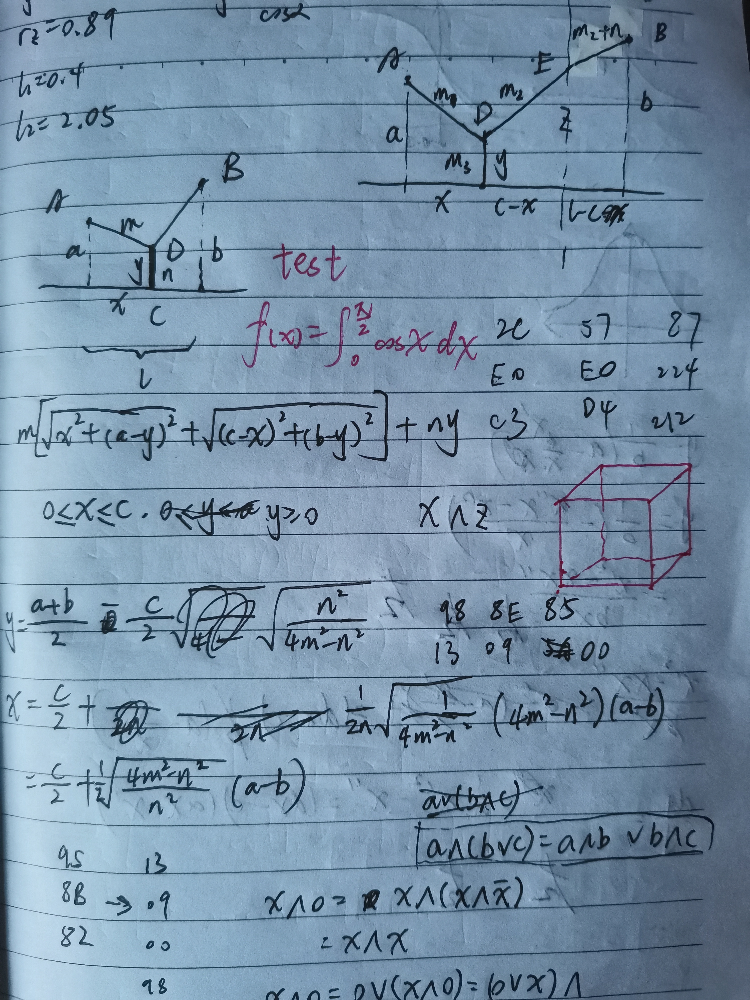 r₂=0.89
cos2
l₁=0.4
l₂=2.05
A m₁ D m₂ E m₂+n B
a m₃ y z b
x c-x
A m D B
a y n b
x c
l
test
f(x)=∫₀^(π/2) cosx dx
2C 57 87
E0 E0 224
C3 D4 212
m[√(x²+(a-y)²)+√((c-x)²+(b-y)²)]+ny
0≤x≤c. y≥0
x∧z
y=(a+b)/2 - c/2 √(n²/(4m²-n²))
98 8E 85
13 09 00
x=c/2+ 1/2n √(1/(4m²-n²)) (4m²-n²)(a-b)
=c/2+1/2 √((4m²-n²)/n²) (a-b)
a∨(b∧c)
a∧(b∨c)=a∧b ∨b∧c
95 13
8B → 09
82 00
98
x∧0= x∧(x∧x̄)
=x∧x
x∧0=0∨(x∧0)=(0∨x)∧